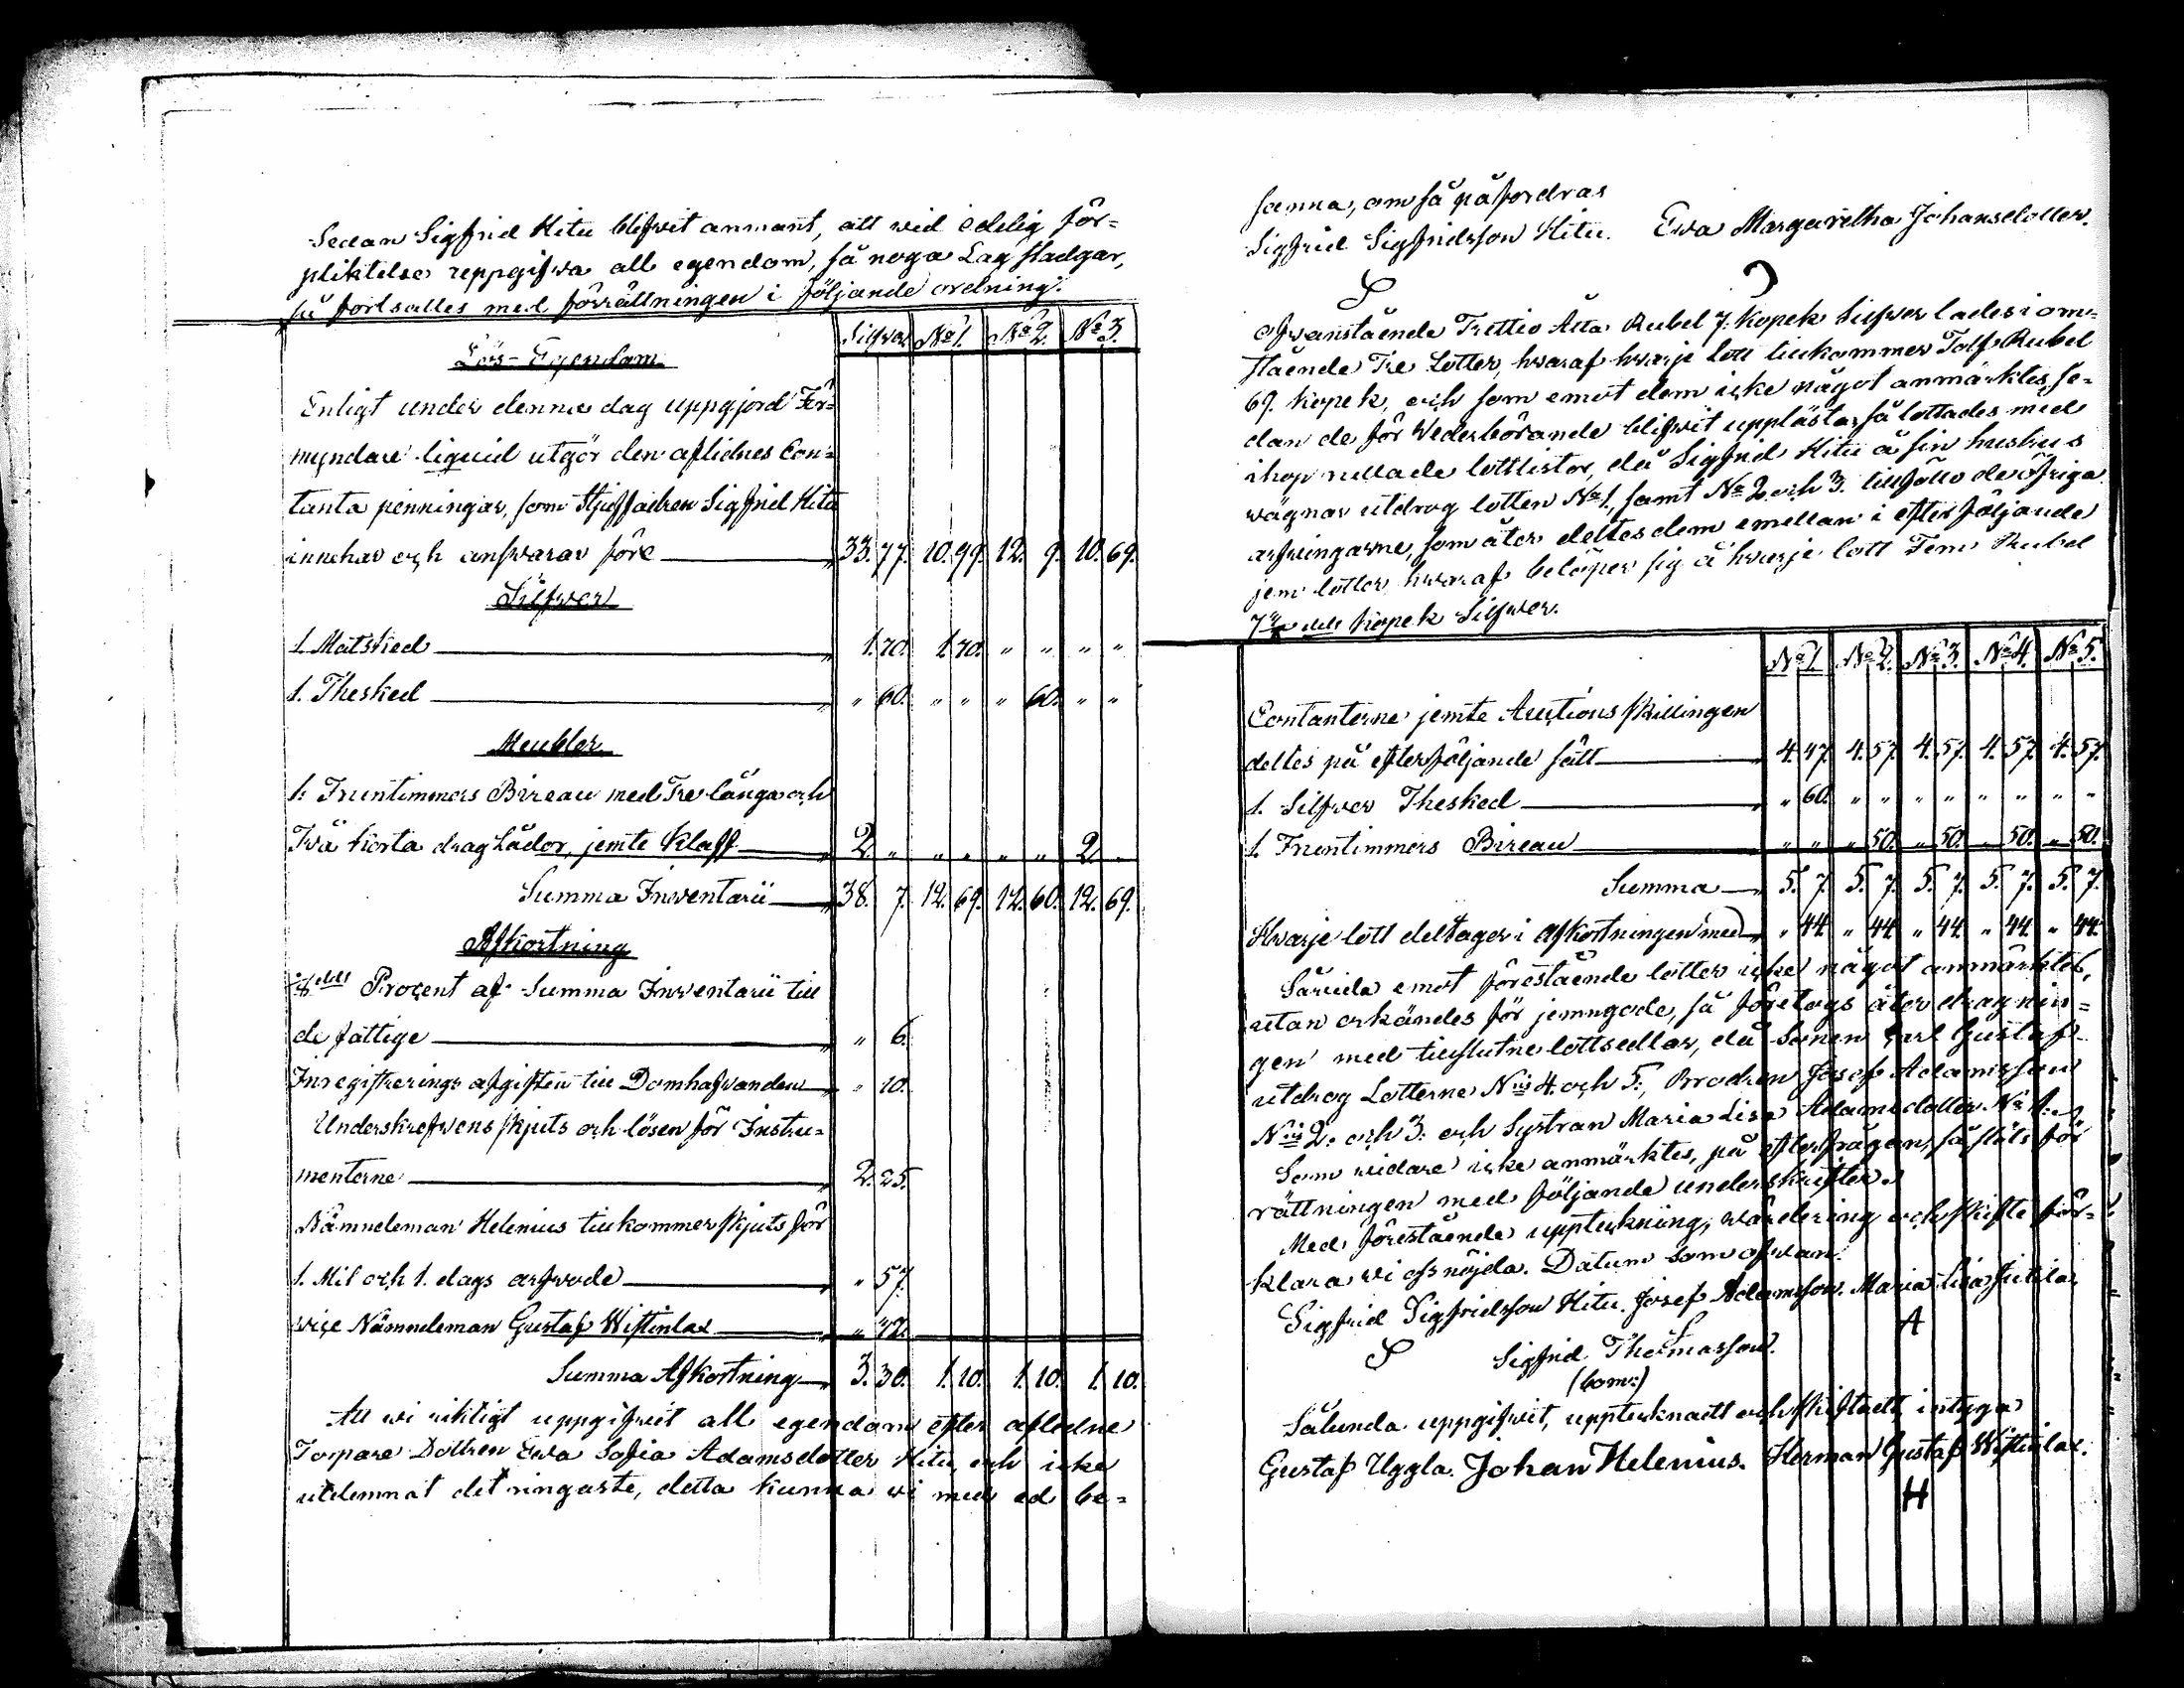 Sedan Sigfrid Hitu blifvit anmant, att vid edelig för=
pliktelse uppgifva all egendom, så noga Lag stadgar,
så fortsattes med förrättningen i följande ordning.
Silfver No 1. No 2. No 3.
Lös-Egendom
Enligt under denna dag uppgjord För=
myndare liquid utgör den aflidnes Con=
tanta penningar, som Stjuffadren Sigfrid Hitu
innehar och ansvarar före 33. 77. 10. 99. 12. 9. 10. 69.
Silfver
1. Matsked 1. 70. 1. 70. " " " "
1. Thesked " 60. " " " 60. " "
Meubler
1. Fruntimmers Bireau med Tre långa och
Två korta drag Lådor, jemte Klaff 2. " " " " " 2. "
Summa Inventarii 38. 7. 12. 69. 12. 60. 12. 69.
Afkortning
1/8dels Procent af Summa Inventarii till
de fattige " 6.
Inregistrerings afgiften till Domhafvanden " 10.
Underskrefvens skjuts och lösen för Instru=
menterne 2. 25.
Nämndeman Helenius tillkommer skjuts för
1. Mil och 1. dags arfvode " 57.
vice Nämndeman Gustaf Wistinlax " 42.
Summa Afkortning 3. 30. 1. 10. 1. 10. 1. 10.
Att vi riktigt uppgifvit all egendom efter aflidne
Torpare Dottren Eva Sofia Adamsdotter Hitu, och icke
utelemnat det ringaste, detta kunna vi med ed be=
sanna, om så påfordras
Sigfrid Sigfridsson Hitu. Eva Margaretha Johansdotter.
S
Ofvanstående Trettio Åtta Rubel 7. Kopek Silfver lades i om=
stående Tre Lotter, hvaraf hvarje lott tillkommer Tolf Rubel
69. kopek, och som emot dem icke något anmärktes, se=
dan de för Vederbörande blifvit upplästa, så lottades med
ihoprullade lottlistor, då Sigfrid Hitu å sin hustrus
vägnar utdrog lotten No 1., samt No 2. och 3. tillföllo de öfriga
arfvingarne, som åter deltes dem emellan i efterföljande
fem lotter, hvaraf belöper sig å hvarje lott Fem Rubel
dels Kopek Silfver.
No 1. No 2. No 3. No 4. No 5.
Contanterne jemte Auctions skillingen
deltes på efterföljande sätt 4. 47. 4. 57. 4. 57. 4. 57. 4. 57.
1. Silfver Thesked " 60. " " " " " " " "
1. Fruntimmers Bireau " " " 50. " 50. " 50. " 50.
Summa 5. 7. 5. 7. 5. 7. 5. 7. 5. 7.
Hvarje lott deltager i Afkortningen med " 44. " 44. " 44. " 44. " 44.
Såvida emot förestående lotter icke något anmärktes,
utan erkändes för jemngode, så företogs åter dragnin=
gen med tillslutne lottsedlar, då Sonen Carl Gustaf
utdrog Lotterne Nis 4. och 5., Brodren Josef Adamsson
Nis 2. och 3. och Systran Maria Lisa Adamsdotter No 1.
Som vidare icke anmärktes, på efterfrågan, så slöts för
rättningen med följande underskrifter.
Med förestående uppteckning, värdering och skifte för=
klara vi oss nöjda. Datum som ofvan.
Sigfrid Sigfridsson Hitu. Josef Adamsson. Maria Lisa
S A
Sigfrid Thomasson.
Sålunda uppgifvit, upptecknadt och skiftadt, intyga
Gustaf Uggla. Johan Helenius. Herman Gustaf Wistinlax.
H